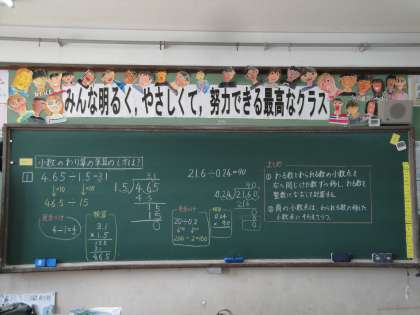 みんな明るく，やさしくて，努力できる最高なクラス
小数のわり算の筆算のしかたは?
1
4.65÷1.5=3.1
↓×10 ↓×10
46.5÷15
4÷1=4
3.1
1.5)4.65
45
15
15
0
検算
3.1
×1.5
155
31
4.65
21.6÷0.24=90
90
0.24)21.60
216
0
20÷0.2
200÷2=100
検算
0.24
×90
まとめ
①わる数とわられる数の小数点を
同じけた数ずつ移し、わる数を
整数になおして計算する。
②商の小数点は、わられる数の移した
小数点にそろえてうつ。